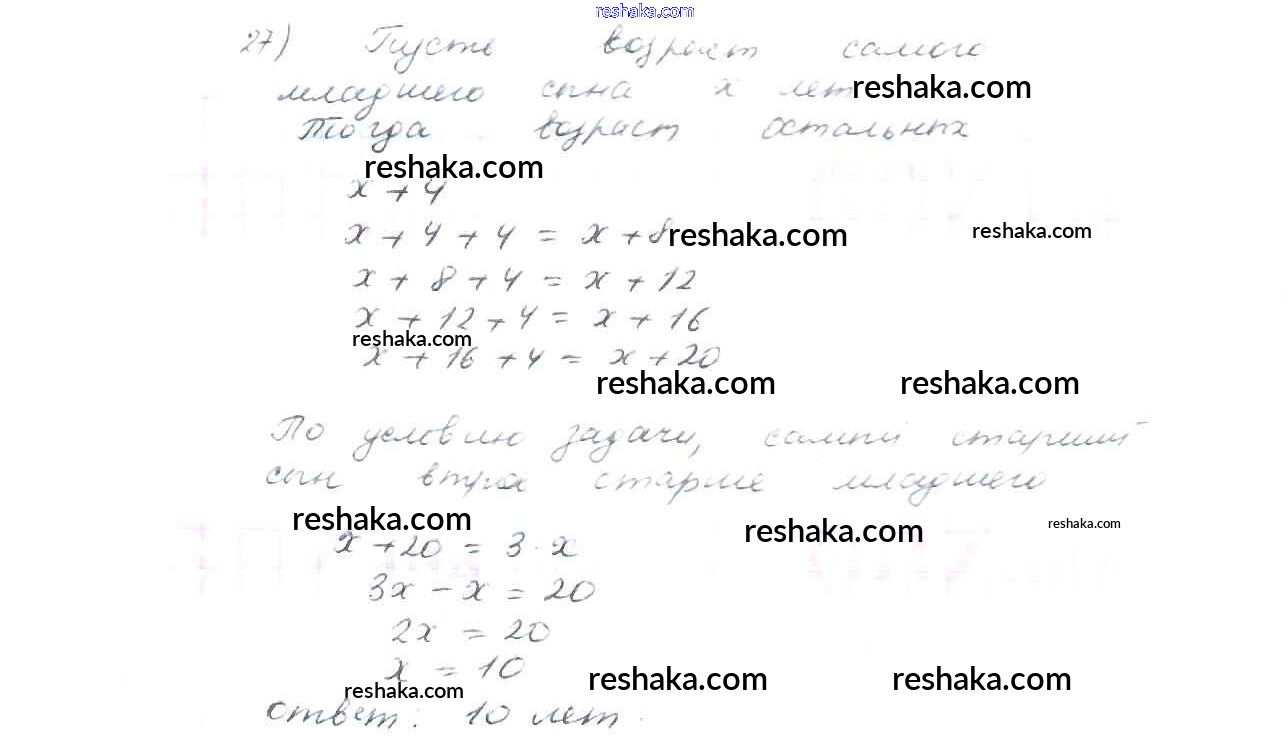 reshaka.com
27) Пусть возраст самого
младшего сына x лет reshaka.com
Тогда возраст остальных
reshaka.com
x + 4
x + 4 + 4 = x + 8 reshaka.com reshaka.com
x + 8 + 4 = x + 12
x + 12 + 4 = x + 16
reshaka.com
x + 16 + 4 = x + 20
reshaka.com reshaka.com
По условию задачи, самый старший
сын втрое старше младшего
reshaka.com reshaka.com reshaka.com
x + 20 = 3 · x
3x - x = 20
2x = 20
x = 10 reshaka.com reshaka.com
reshaka.com
Ответ: 10 лет.